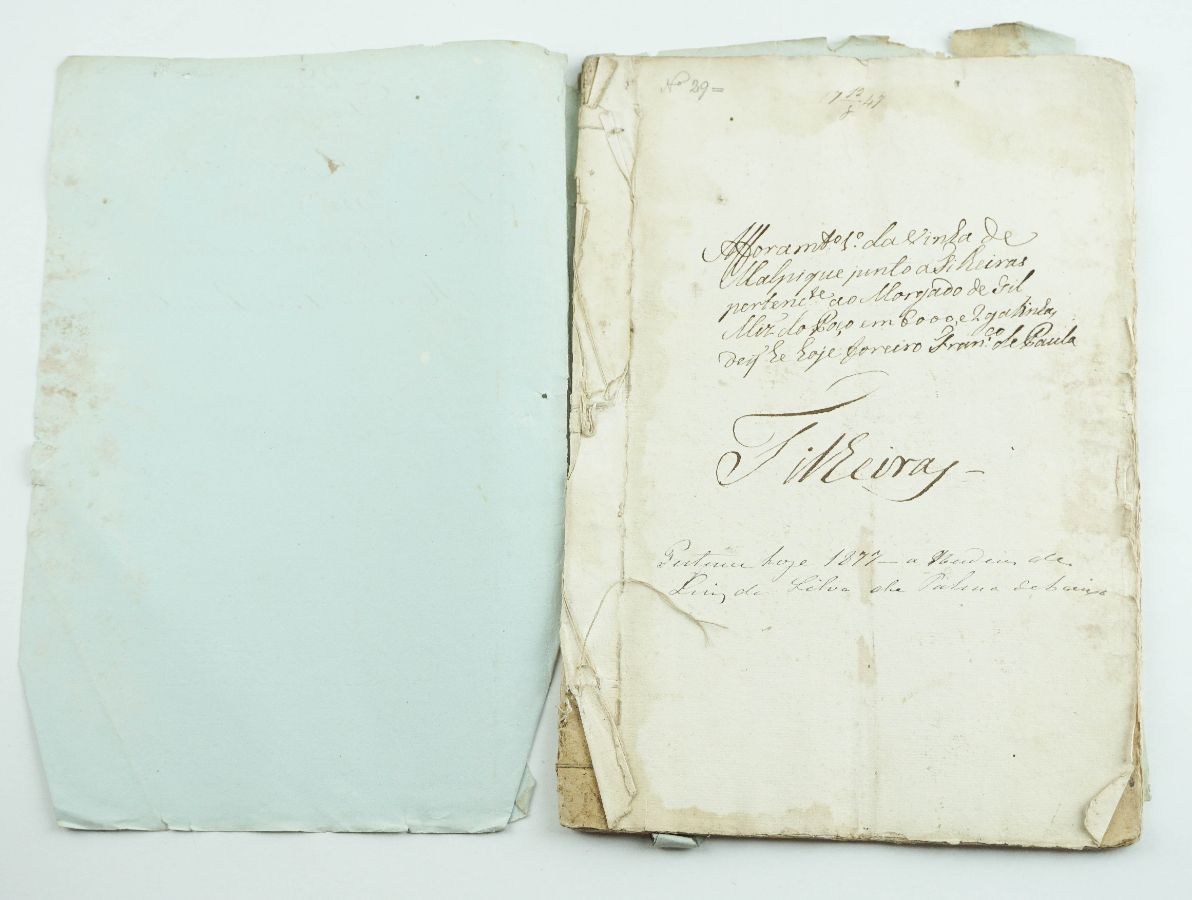 Nº 29=
17 12/8 47
Afforamtº 1º. da vinha de
Malpique junto a Filheiras
pertencte. ao Morgado de Gil
Miz. do Poço em 6000, e 2 galinhas
de q he hoje foreiro Franco. de Paula
Filheiras
Pertence hoje 1877 a
Luis da Silva de Palma debaixo